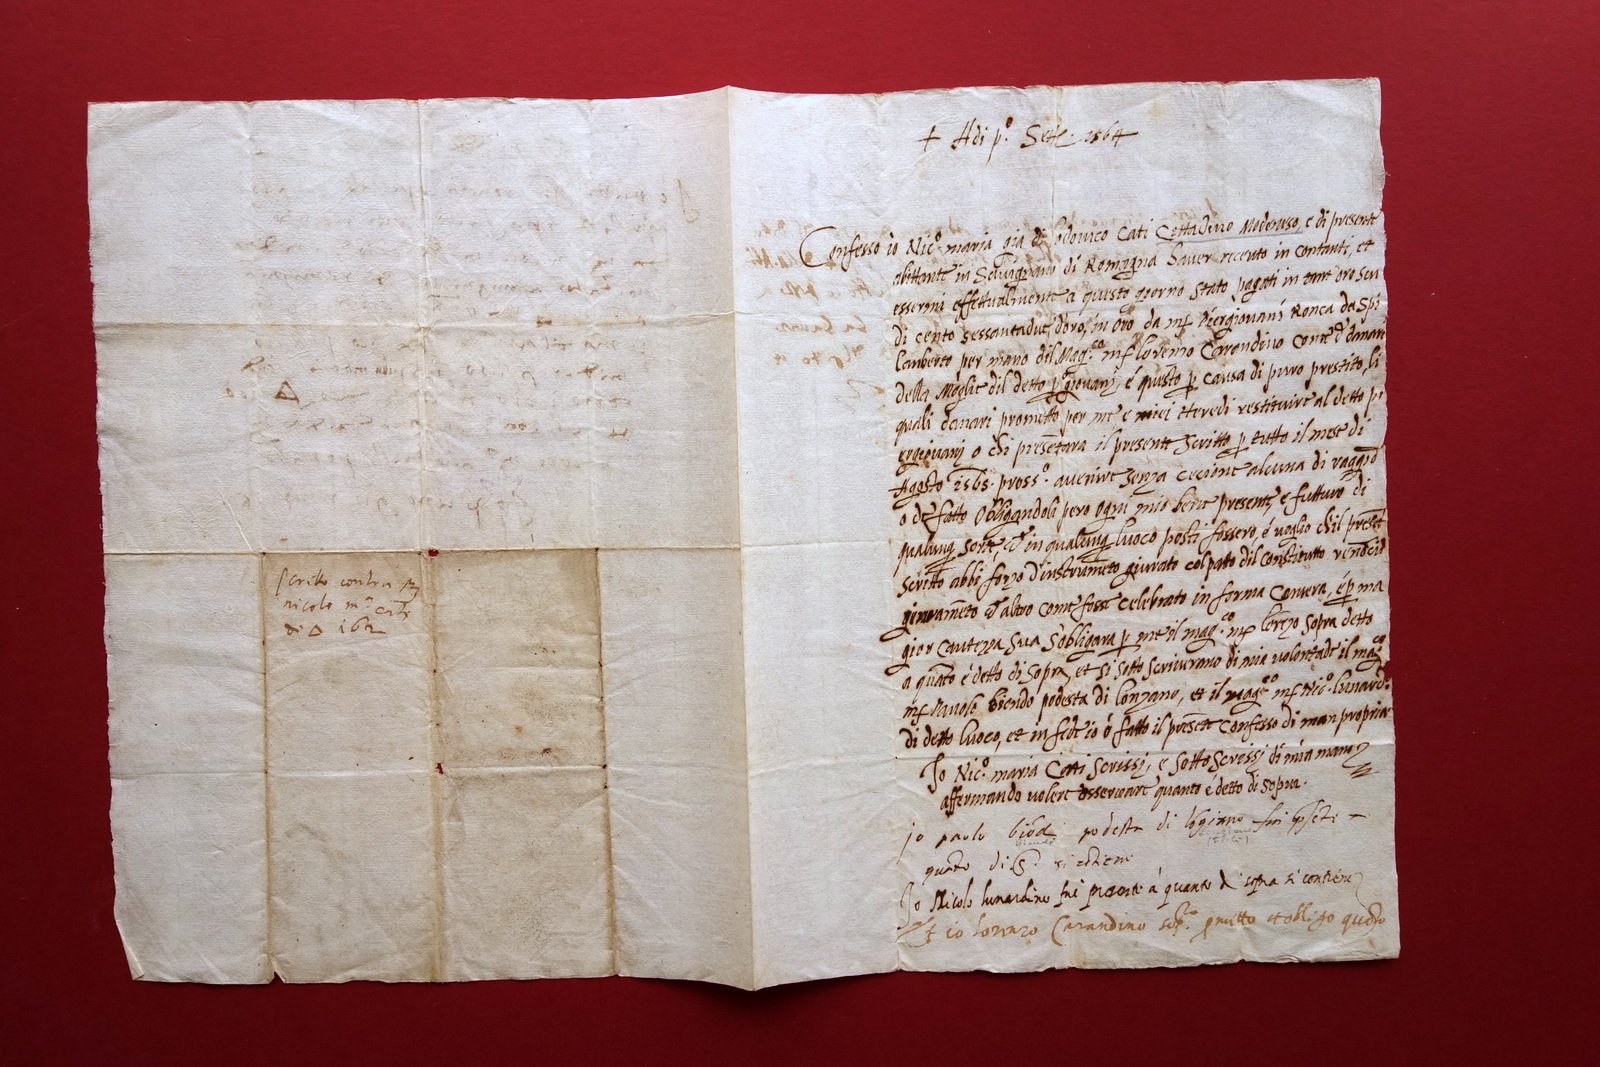 + Adi p.º Sette. 1564
Confesso io Nic.º maria già di lodovico Cati Cittadino Modenese, e di presente
abittante in Savignano di Romagna haver receuto in contanti, et
essermi effettualmente a questo giorno stato pagati in tant' oro scu
di cento sessantadue d'oro, in oro da m.r Piergiovanj Ronca da Spi
lamberto per mano dil Mag.co m.r lorenzo Carandino come d' danari
della Moglie dil detto p.giovanj, é questo p causa di puro prestito, li
quali danari prometto per me e miei heredi restituire al detto pi
ergiovanj o chi presētara il presente scritto p tutto il mese di
Agosto 1565. pross.º avenire senza cecione alcuna di raggiō
o de fatto obligandoli pero ogni mio bene presente e futturo di
qualunq sorte, et in qualunq luoco posti fossero, é voglio ch'il presēte
scritto abbi forza d'instrumēto giurato col patto dil Constitutto
giuramēto et altro come fosse celebrato in forma Camera, é p ma
gior cautezza sua s'obligara p me il mag.co m.r lorēzo sopra detto
a quāto é detto di sopra, et si sotto scriverano di mia volontade il mag.co
m.r Pavolo Biondo podesta di lonzano, et il mag.co m.r Nic.º lunard.º
di detto luoco, et in fede io ó fatto il presēte Confesso di man propria
Io Nic.º maria Cati scrissi, e sotto scrissi di mia mano
affermando volere osservare quanto é detto di sopra.
io paulo podesta di fui pste a
quāto di s. si cōtiene
Io Nicolo lunardino fui presente á quanto di sopra si contiene
Et io lorenzo Carandino sop.to pmetto et obligo quāto
Scritto contra m.r
nicolo m.a cati
de Δ 162